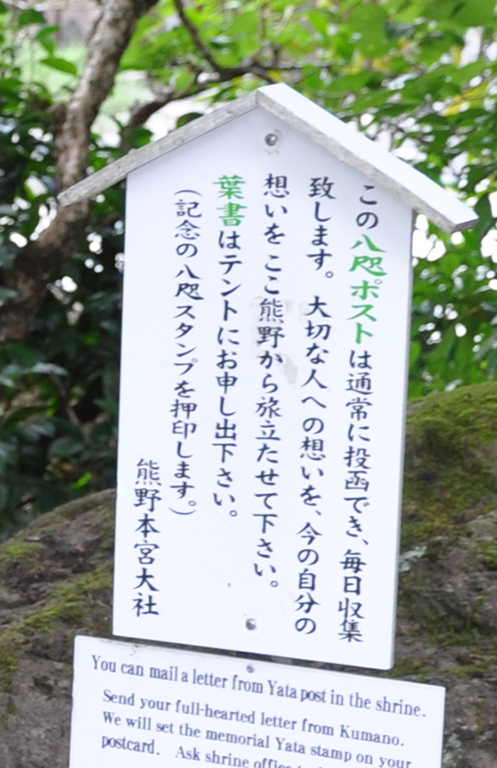 この八咫ポストは通常に投函でき、毎日収集
致します。大切な人への想いを、今の自分の
想いをここ熊野から旅立たせて下さい。
葉書はテントにお申し出下さい。
（記念の八咫スタンプを押印します。）
熊野本宮大社
You can mail a letter from Yata post in the shrine.
Send your full-hearted letter from Kumano.
We will set the memorial Yata stamp on your
postcard. Ask shrine office